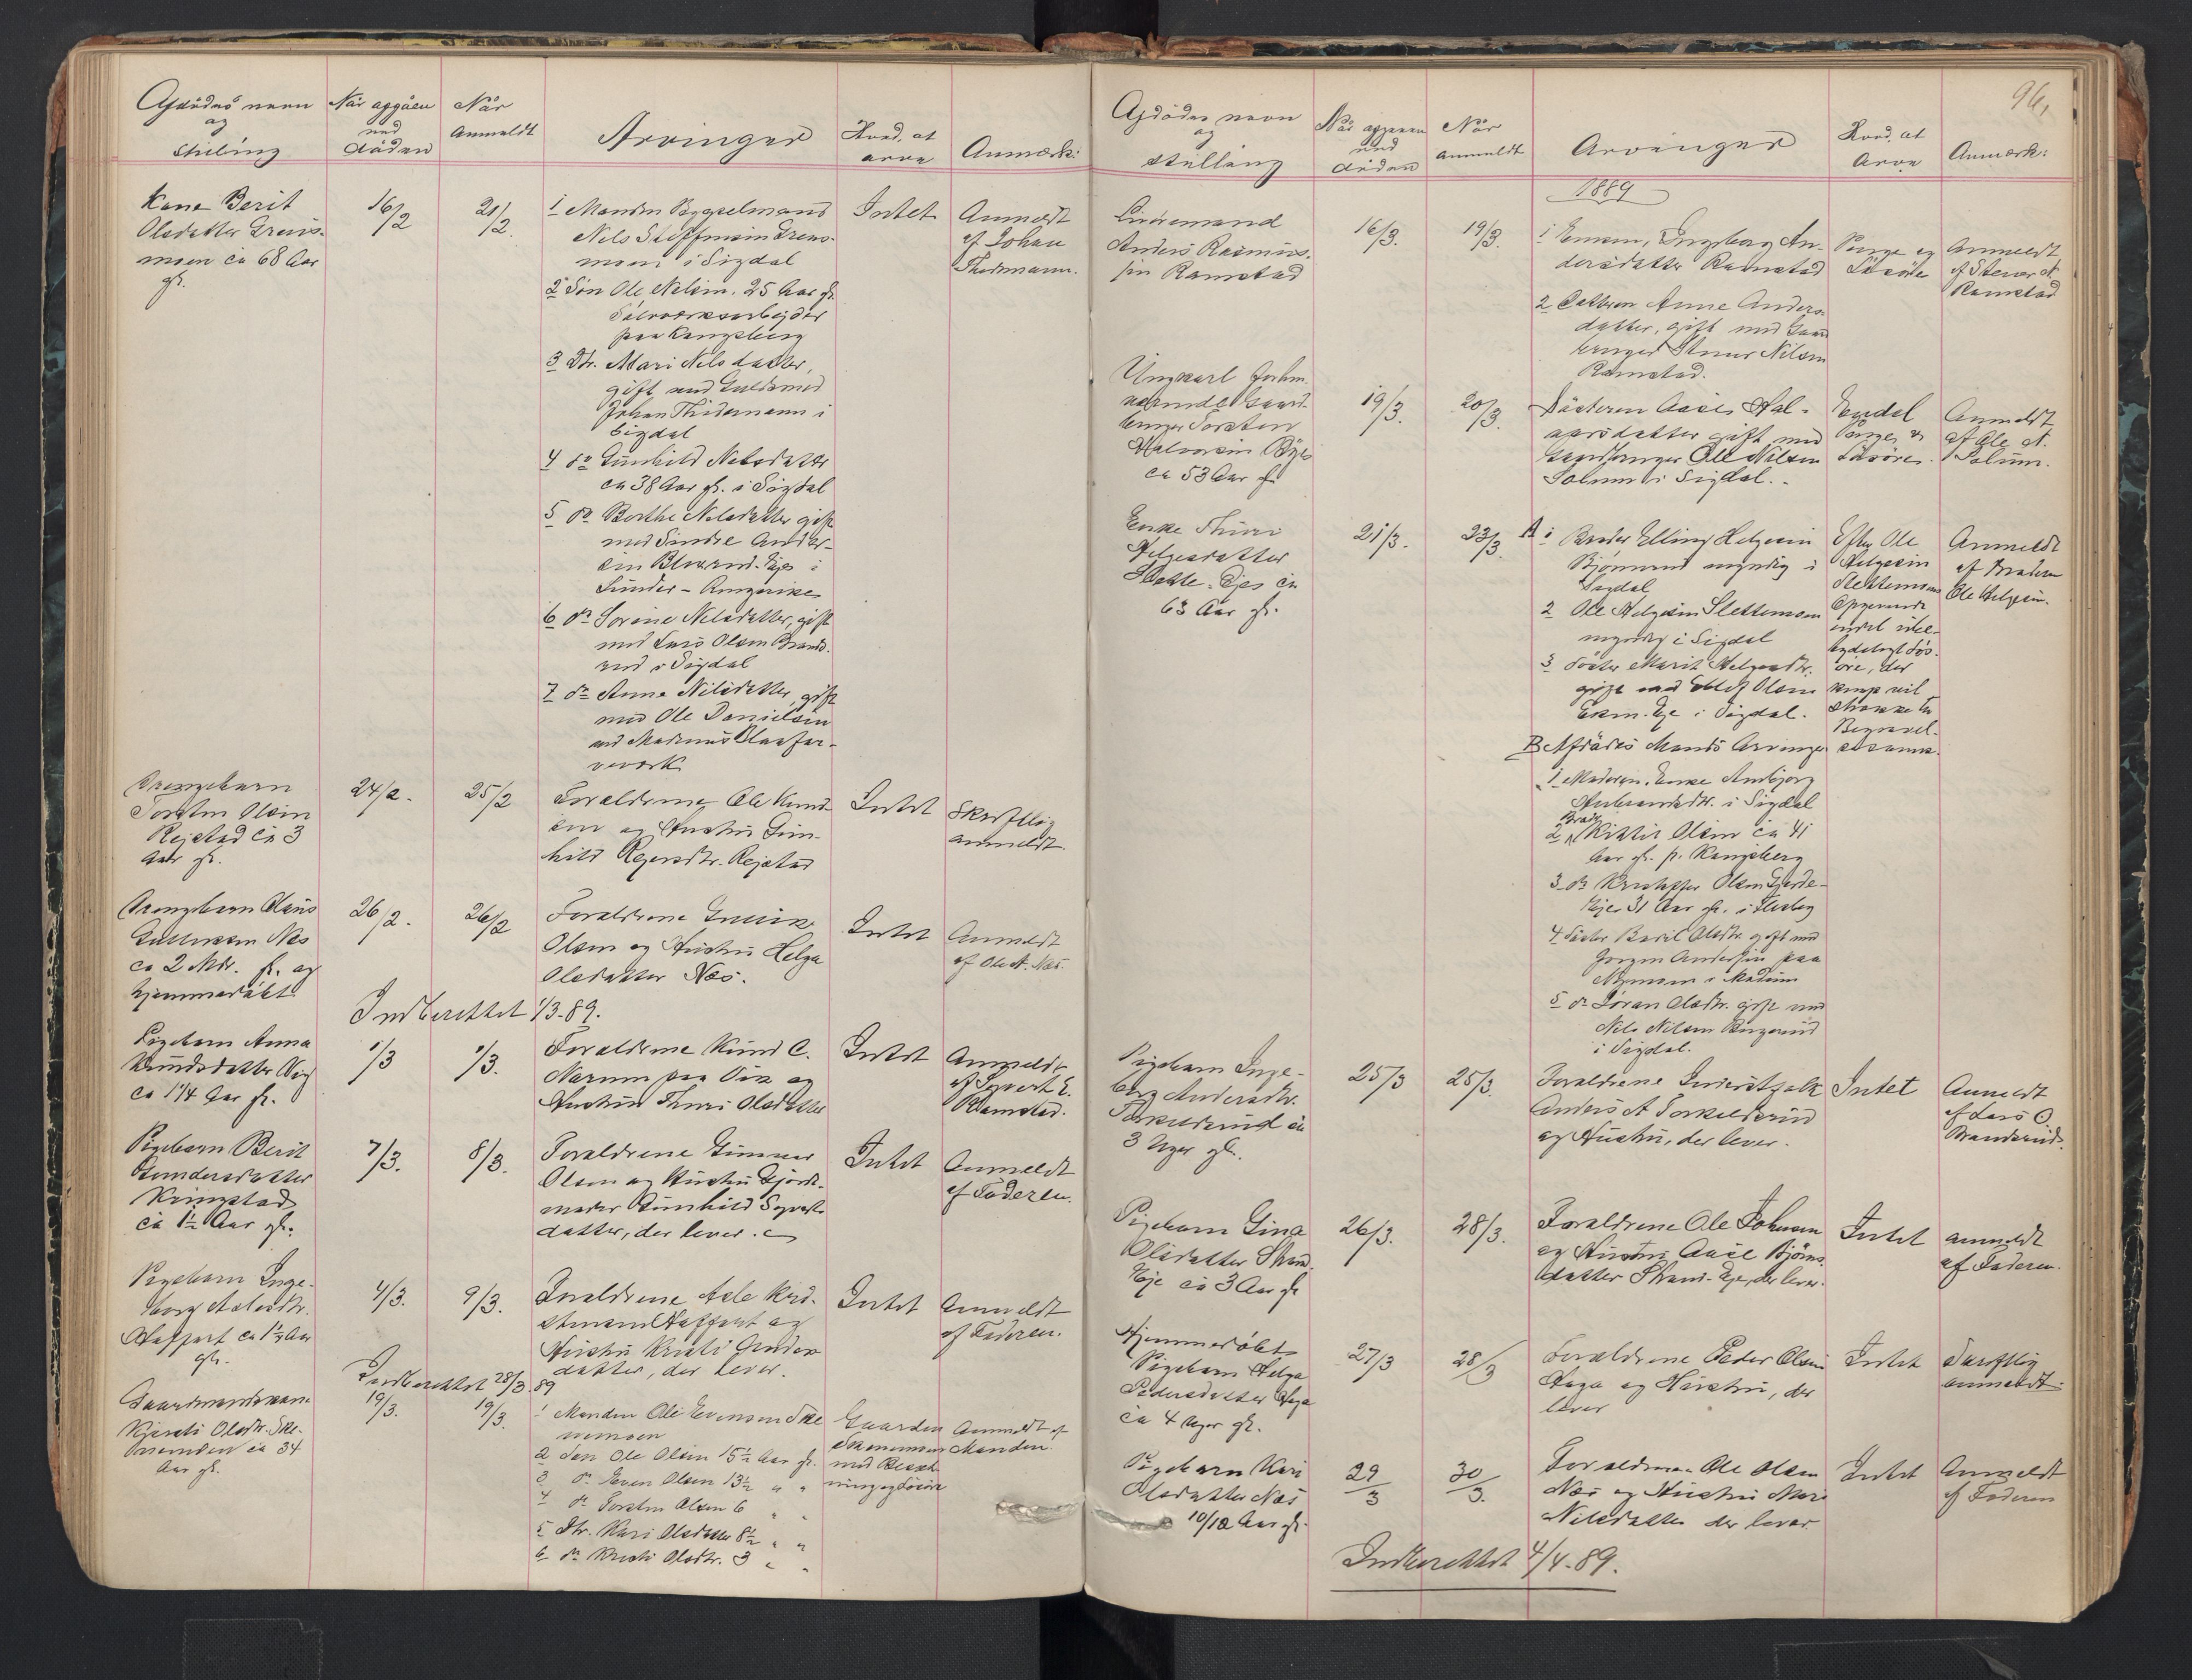 Afdödes navn
og
Stilling
Når afgåen
ved
döden
Når
Anmeldt
Arvinger
Hvad, at
arve
Anmærk:
Kone Berit
Olsdatter Grens-
moen ca 68 Aar
gl.
16/2
21/2.
1 Manden Bygselmand
Nils Steffensen Grens-
moen i Sigdal
2 Sön Ole Nilsen. 25 Aar gl.
Sölvværksarbejder
paa Kongsberg
3 Dtr. Mari Nilsdatter,
gift med Guldsmed
Johan Thidemann i
Sigdal
4 do Gunhild Nilsdatter
ca 38 Aar gl. i Sigdal
5 do Berthe Nilsdatter gift
med Sindre Ander-
sen Ejes i
Ringerike
6 do Sorine Nilsdatter, gift
med Lars Olsen Brænd-
rud i Sigdal
7 do Anne Nilsdatter, gift
med Ole Danielsen
ved Modums Blaafar-
veværk
Intet
Anmeldt
af Johan
Thidemann.
Drengebarn
Torsten Olsen
Rejstad ca 3
Aar gl.
24/2.
25/2
Forældrene Ole Knud-
sen og Hustru Gun-
hild Rejersdtr. Rejstad
Intet
Skriftlig
anmeldt
Drengebarn Olaus
Gulliksen Næs
ca 2 Mdr. gl. og
hjemmedöbt
26/2.
26/2
Forældrene Gullik
Olsen og Hustru Helga
Olsdatter Næs.
Intet
Anmeldt
af Ole A. Næs.
Indberettet 1/3-89.
Pigebarn Anna
Knudsdatter Vig
ca 1 1/4 Aar gl.
1/3
1/3.
Forældrene Knud C.
Narum paa Vik og
Hustru Thuri Olsdatter
Intet
Anmeldt
af Syvert E.
Ramstad.
Pigebarn Berit
Gundersdatter
Kringstad
ca 1 1/2 Aar gl.
7/3.
8/3.
Forældrene Gunnar
Olsen og Hustru Gjorde-
moder Gunhild Syverts-
datter, der lever.
Intet
Anmeldt
af Faderen.
Pigebarn Inge-
borg Aslesdtr.
Haffart ca 1 1/2 Aar
gl.
4/3.
9/3.
Forældrene Asle Kri-
stensen Haffart og
Hustru Kristi Anders-
datter, der lever.
Intet
Anmeldt
af Faderen.
Indberettet 28/3.89
Gaardmandskone
Kjersti Olsdtr. Ske-
ca 34
Aar gl.
19/3.
19/3.
1 Manden Ole Evensen Ske-
2 Sön Ole Olsen 15 1/2 Aar gl.
3 do Even Olsen 13 1/2 " "
4 do Torsten Olsen 6 " "
5 Dtr. Kari Olsdatter 8 1/2 " "
6 do Kristi Olsdtr. 3 " "
Gaarden
med Besæt-
ning og Lösöre
Anmeldt af
Manden.
96,
Afdödes navn
og
stilling
Når afgaaen
ved
döden
Når
anmeldt
Arvinger
Hvad, at
Arve
Anmærk:
1889
Anders Rasmus-
sen Ramstad
16/3.
19/3.
1 Enken, Ingeborg An-
dersdatter Ramstad
2 Datteren Anne Anders-
datter, gift med Gaard-
bruger Stener Nilsen
Ramstad.
Penge og
Lösöre
Anmeldt
af Stener N.
Ramstad
Ungkarl Forhen-
værende Gaard-
bruger Torsten
Halvorsen Bye
ca 53 Aar gl.
19/3.
20/3.
Sösteren Aase Hal-
vorsdatter gift med
Gaardbruger Ole Nilsen
Solum i Sigdal.
Endel
Penge og
Lösöre.
Anmeldt
af Ole N.
Solum.
Enke Thuri
Helgesdatter
Slette-Ejes ca
63 Aar gl.
21/3.
23/3.
A 1 Broder Elling Helgesen
Bjönnerud myndig i
Sigdal
2 Ole Helgesen Slettemoen
myndig i Sigdal
3 Söster Marit Helgesdtr.
gift med Ellef Olsen
Eken-Eje i Sigdal.
B Afdödes Mands Arvinger
1 Moderen, Enke Ambjörg
i Sigdal
2 Broder Kittil Olsen ca 41
Aar gl. p. Kongsberg
3 do Kristoffer Olsen Gjerde-
Ejer 31 Aar gl. i Flesberg
4 Söster Berit Olsdtr. gift med
Jörgen Andersen paa
Nymoen i Modum
5 do Göran Olsdtr. gift med
Nils Nilsen
i Sigdal.
Efter Ole
Helgesen
Slettemoens
Opgivende
endel ube-
tydeligt Lös-
öre, der
knap vil
strække til
Begravel-
sesomk.
Anmeldt
af Broderen
Ole Helgesen.
Pigebarn Inge-
borg Andersdtr.
Torkelsrud ca
3 Uger gl.
25/3
25/3.
Forældrene Inderstfolk
Anders A Torkelsrud
og Hustru, der lever.
Intet
Anmeldt
af Lars O.
Brænderud.
Pigebarn Gina
Olsdatter Strand-
Eje ca 3 Aar gl
26/3.
28/3.
Forældrene Ole Johnsen
og Hustru Aase Björns-
datter Strand-Eje, der lever.
Intet
anmeldt
af Faderen.
Hjemmedöbt
Pigebarn Helga
Pedersdatter Haga
ca 4 Uger gl.
27/3
28/3
Forældrene Peder Olsen
Haga og Hustru, der
lever
Intet
Skriftlig
anmeldt.
Pigebarn Kari
Olsdatter Næs
10/12 Aar gl.
29/3
30/3.
Forældrene Ole Olsen
Næs og Hustru Mari
Nilsdatter der lever.
Intet
Anmeldt
af Faderen
Indberettet 4/4-89.